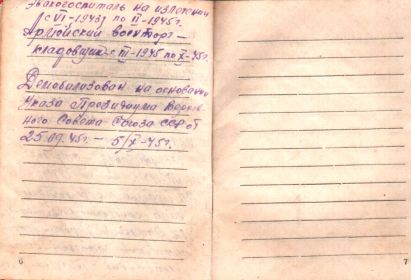 Эвакогоспиталь на излечении
с VI-1943г по II-1945г.
Армейский военторг -
кладовщик с III-1945 по X-45г.
Демобилизован на основании
Указа Президиума Верхов-
ного Совета Союза ССР от
25.09.45г. - 5/X-45г.
6
7